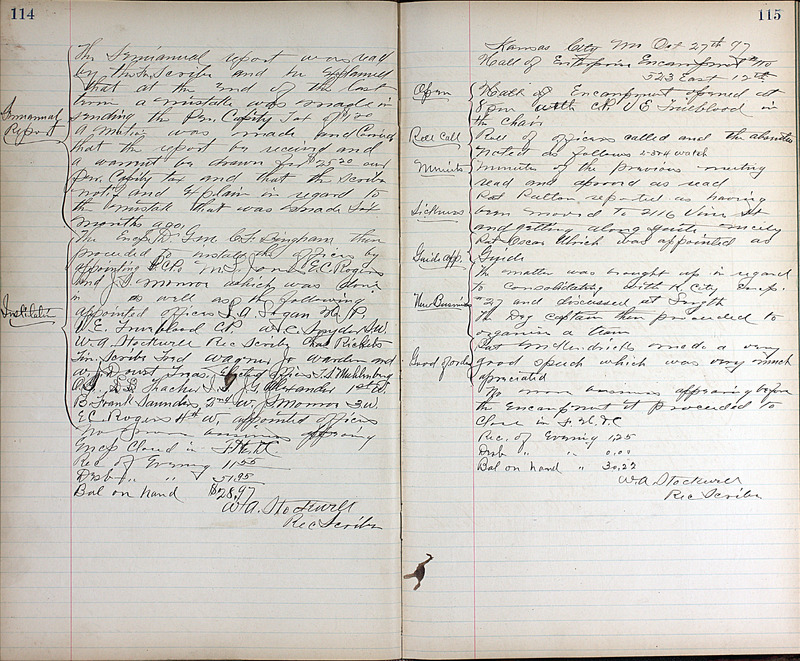 114
The Semianual report was read
by the Fin. Scribe and he explained
that at the end of the last
term a mistake was made in
sending the Per. Capity Tax of
Semianual
Report
A motion was made and Carried
that the report be received and
a warrant be drawn for $25 20 our
Per. Capity tax and that the Scribe
notif and Explain in regard to
the mistake that was made Six
months ago.
The D. Gen C.F. Bingham then
proceded to install the officers by
appointing E.C. Rogers
and J.S. Monroe which was done
in as well as the following
Installat
appointed officers L.A. Logan H.P.
V.E. Trueblood C.P. W.C. Snyder S.W.
W.A. Stockwell Rec Scribe Chas Ricketts
Fin. Scribe Fred Wagner Jr warden and
W.J. Doust Treas. Elected officers
Thacher J.G. Alexander 1st W.
B. Frank Saunders 2nd W. J Monroe 3 W.
E.C. Rogers 4th W. appointed officers
No more business appearing
Encp Closed in F.H.&C
Rec of Evening 11.55
Disb " " 51.95
Bal on hand $28.97
W.A. Stockwell
Rec Scribe
115
Kansas City Mo Oct 27th 97
Hall of Enterprise Encampment #70
523 East 12th
Open
Hall of Encampment opened at
8 pm with C.P. V E Trueblood in
the chair
Roll Call
Roll of officers called and the absentees
noted as follows 2-3&4 watch
Minutes
Minutes of the previous meeting
read and aproved as read
Pat Patton reported as having
Sickness
been moved to 2416 Vine St
and getting along quite nicely
Pat Oscar Ulrich was appointed as
Guide app.
Guide
The matter was brought up in regard
to Consolidating with K City Encp.
New Business
#27 and discussed at length
The Deg Captain then proceeded to
organize a team
Good of order
Pat McKendricks made a very
good speech which was very much
apreciated
No more business appearing before
the Encampment it proceeded to
Close in F. H. & C
Rec. of Evening 1.25
Disb " " 0.00
Bal on hand " 30.22
W.A Stockwell
Rec Scribe